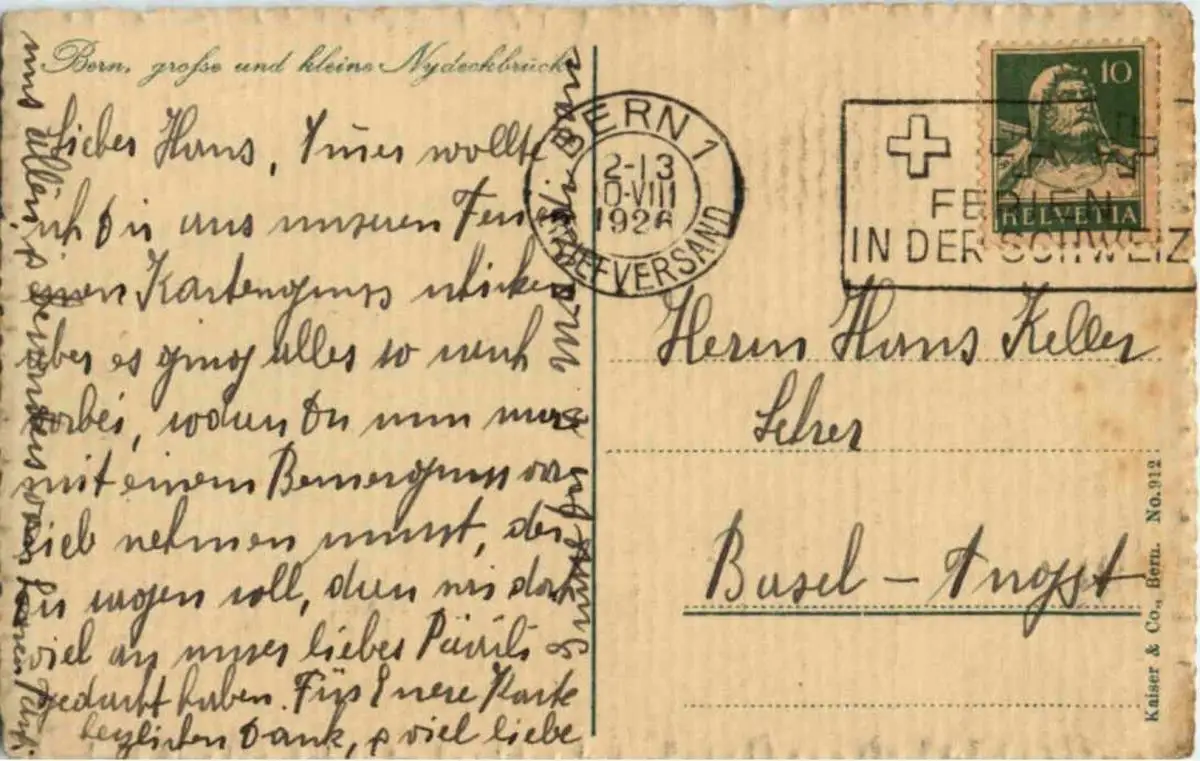 Bern, große und kleine Nydeckbrücke
Lieber Hans, Immer wollte
ich Dir aus unseren Ferien
einen Kartengruss schicken
aber es ging alles so rasch
vorbei, sodass Du nun nur
mit einem Bernergruss vor-
lieb nehmen musst, der
Dir sagen soll, dass wir doch
viel an unser liebes Päärli
gedacht haben. Für Euere Karte
herzlichen Dank, & viel liebe
Grüsse
uns allen, besonders von
BERN 1
12-13
10-VIII
1926
BRIEFVERSAND
10
HELVETIA
FERIEN
IN DER SCHWEIZ
Herrn Hans Keller
Lehrer
Basel - Augst
Kaiser & Co., Bern. No. 912